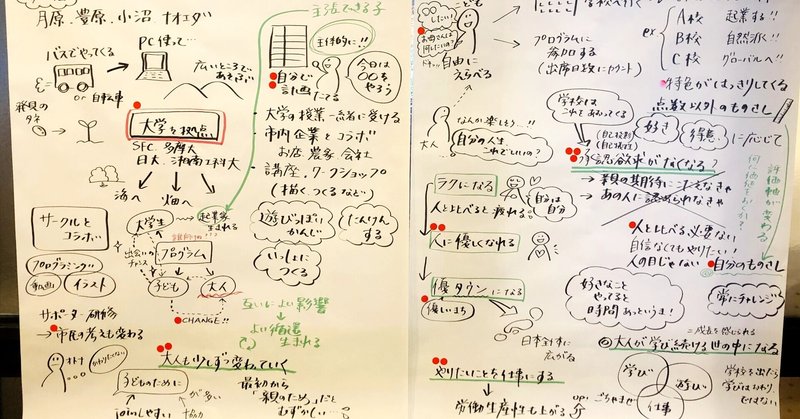 月原、豊原、小沼 ナオエダ
バスでやってくる
PC使って…
広いところで
あそぶ
or 自転車
発見の
タネ
大学を拠点
SFC、多摩大
日大、湘南工科大
海へ
畑へ
サークルと
コラボ
大学生
起業家
生まれる
プログラム
出会いの
チャンス
子ども
大人
プログラミング
動画
イラスト
CHANGE!!
サポーター研修
→市民の考えも変わる
オトナ
かわりたくない
大人も少しずつ変わっていく
子どものために
が多い
joinしやすい
協力
最初から
「親のため」だと
むずかしい…
主張できる子
主体的に!!
自分で
計画たてる
今日は
〇〇を
やろう
大学の授業一緒に受ける
・市内企業とコラボ
お店、農家、会社
・講座、ワークショップ
(描く、つくるなど)
遊びっぽい
かんじ
たんけん
する
いっしょに
つくる
互いによい影響
よい循環
生まれる
したい!
お母さんは
何したいの?
自由に
えらべる
プログラムに
参加する
(出席日数にカウント)
ex
A校 起業する!!
B校 自然派く!!
C校 グローバルへ!!
特色がはっきりしてくる
点数以外のものさし
好き
得意
に応じて
学校は
これでまわってる
なんか楽しそう…!
大人
自分の人生
これでいいの?
承認欲求がなくなる?
→親の期待に応えなきゃ
→あの人に認められなきゃ
評価軸が変わる
何に価値をおくか?
ラクになる
人と比べると疲れる。
自分は
自分
人に優しくなれる
優タウンになる
優しいまち
日本全体に
広がる
人とくらべる必要ない
自信なくてもやりたい!
人の目じゃない
自分のものさし
好きなこと
やってると
時間あっという間!
常にチャレンジ
=成長を感じられる
◎大人が学び続ける世の中になる
やりたいことを仕事にする
→労働生産性も上がる
up!
学び
遊び
仕事
ごちゃまぜ
学校を出たら
学びはおわり
ではない